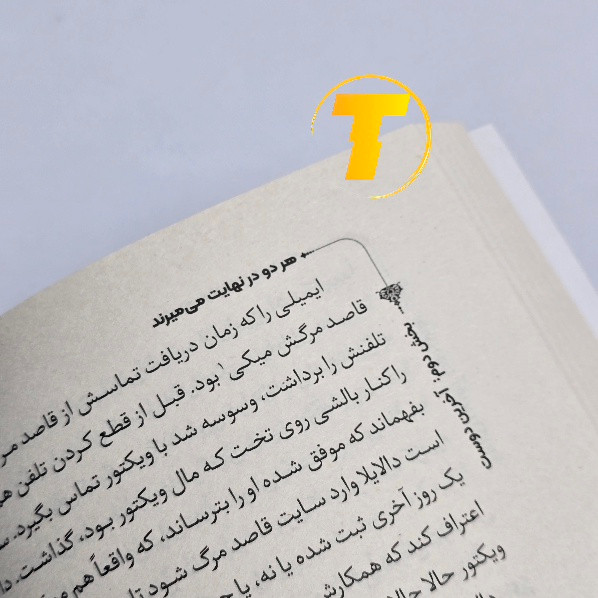 T
هر دو در نهایت می‌میرند
بخش دوم: آخرین دوست
ایمیلی را که زمان دریافت تماسش از قاصد
قاصد مرگش میکی ۱ بود. قبل از قطع کردن تلفن
تلفنش را برداشت، وسوسه شد با ویکتور تماس بگیرد.
را کنار بالشی روی تخت که مال ویکتور بود، گذاشت.
بفهماند که موفق شده او را بترساند، که واقعاً هم
است دالایلا وارد سایت قاصد مرگ شود تا
یک روز آخری ثبت شده یا نه، یا
اعتراف کند که همکارش
ویکتور حالا